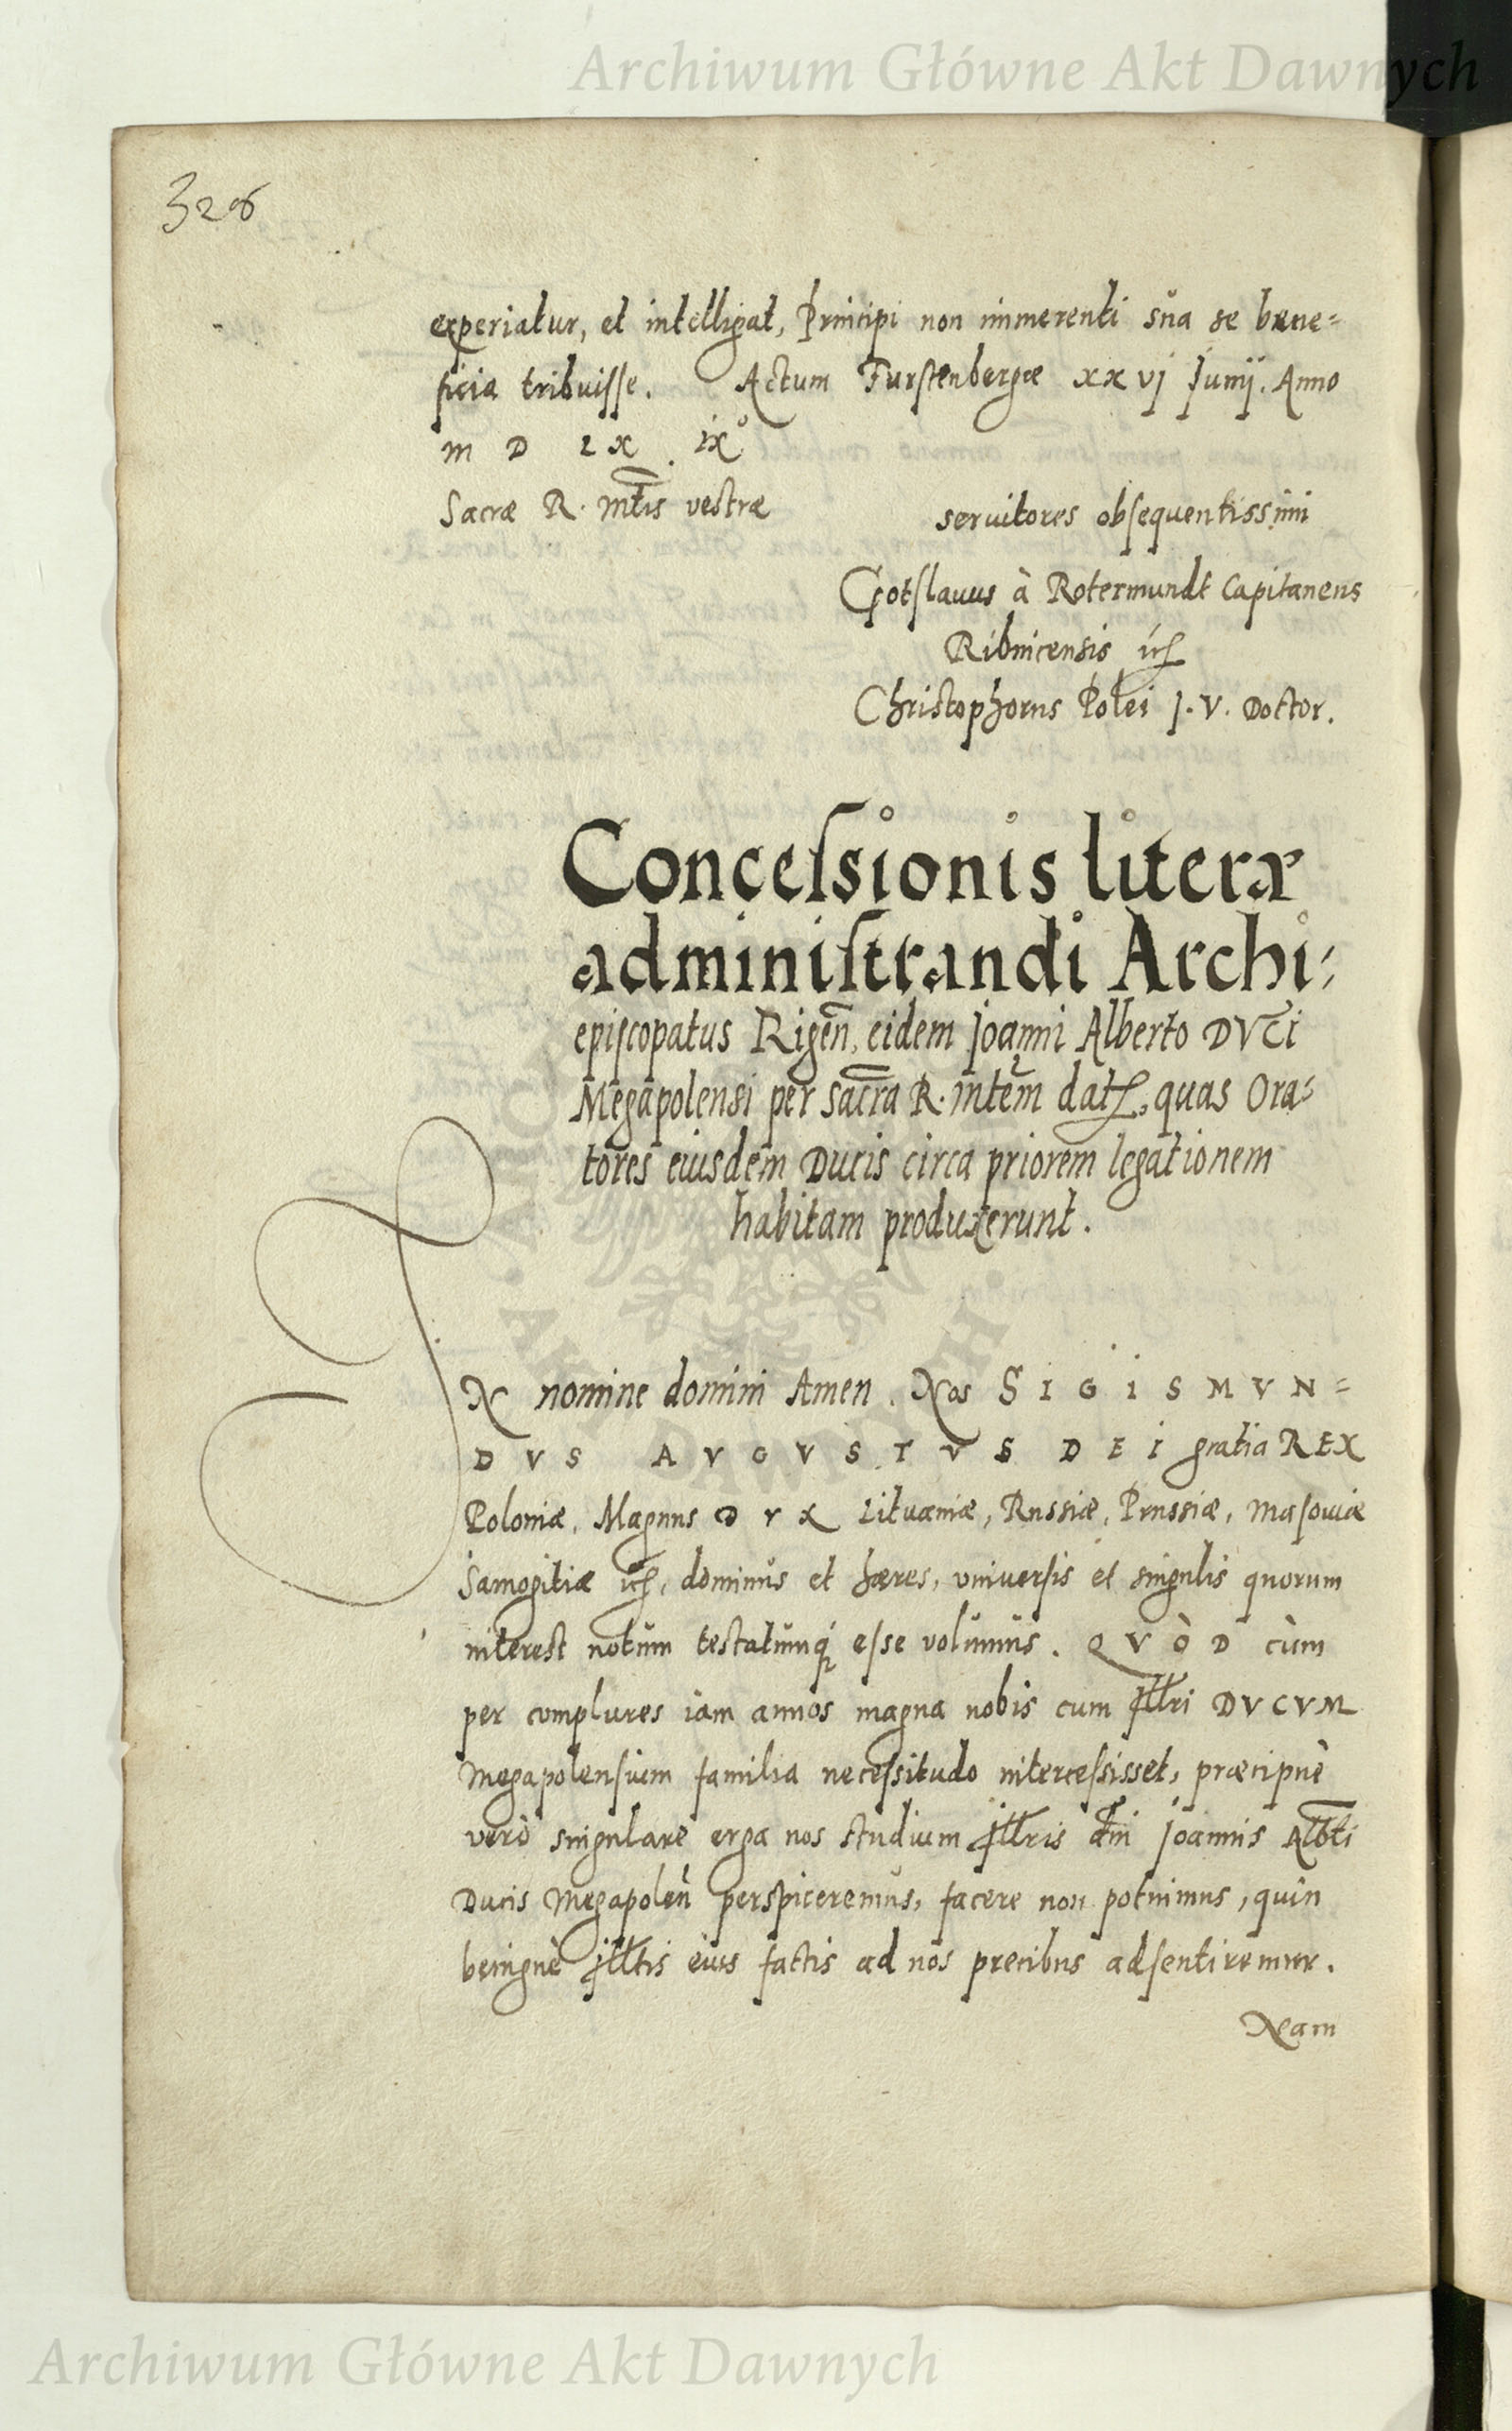 Archiwum Główne Akt Dawnych
326
experiatur, et intelligat, Principi non immerenti sua se bene=
ficia tribuisse. Actum Furstenbergæ xxvj Junij. Anno
M D L X . IXº
Sacræ R. Mtis vestræ
servitores obsequentissimi
Gotslauus à Rotermundt Capitaneus
Ribnicensis
Christophorus Polei J. V. Doctor.
Concessionis literæ
administrandi Archi=
episcopatus Rigeñ, eidem Joanni Alberto DVCi
Megapolensi per sacrã R. mtem dat, quas Ora=
tores eiusdem Ducis circa priorem legationem
habitam produxerunt.
IN nomine domini Amen. Nos SIGISMVN=
DVS AVGVSTVS DEI gratia REX
Poloniæ, Magnus DVX Lituaniæ, Russiæ, Prussiæ, Masoviæ
Samogitiæ dominus et hæres, vniuersis et singulis quorum
interest notum testatumq́ esse volumus. QVÒD cùm
per complures iam annos magna nobis cum Jllri DVCVM
Megapolensium familia necessitudo intercessisset, præcipuè
verò singulare erga nos studium Jllris dñi Joannis Albti
Ducis Megapoleñ perspiceremus, facere non potuimus, quin
benignè Jlltis eius factis ad nos precibus adsentiremur.
Nam
Archiwum Główne Akt Dawnych